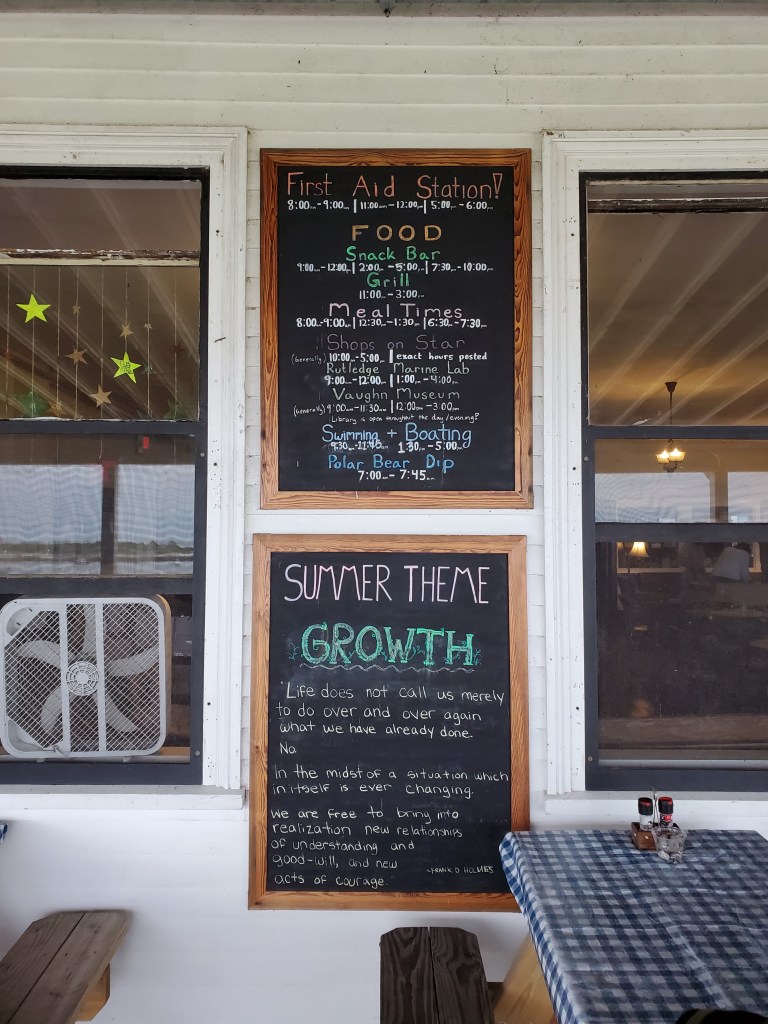 First Aid Station!
8:00am-9:00am | 11:00am-12:00pm | 5:00pm-6:00pm
FOOD
Snack Bar
9:00am-12:00pm | 2:00pm-5:00pm | 7:30pm-10:00pm
Grill
11:00am-3:00pm
Meal Times
8:00am-9:00am | 12:30pm-1:30pm | 6:30pm-7:30pm
Shops on Star
(Generally) 10:00am-5:00pm | exact hours posted
Rutledge Marine Lab
9:00am-12:00pm | 1:00pm-4:00pm
Vaughn Museum
(Generally) 9:00am-11:30am | 12:00pm-3:00pm
Library is open throughout the day/evening?
Swimming + Boating
9:30am-11:45am 1:30pm-5:00pm
Polar Bear Dip
7:00am-7:45am
SUMMER THEME
GROWTH
"Life does not call us merely
to do over and over again
what we have already done.
No
In the midst of a situation which
in itself is ever changing.
we are free to bring into
realization new relationships
of understanding and
good-will, and new
acts of courage.
-FRANK O HOLMES